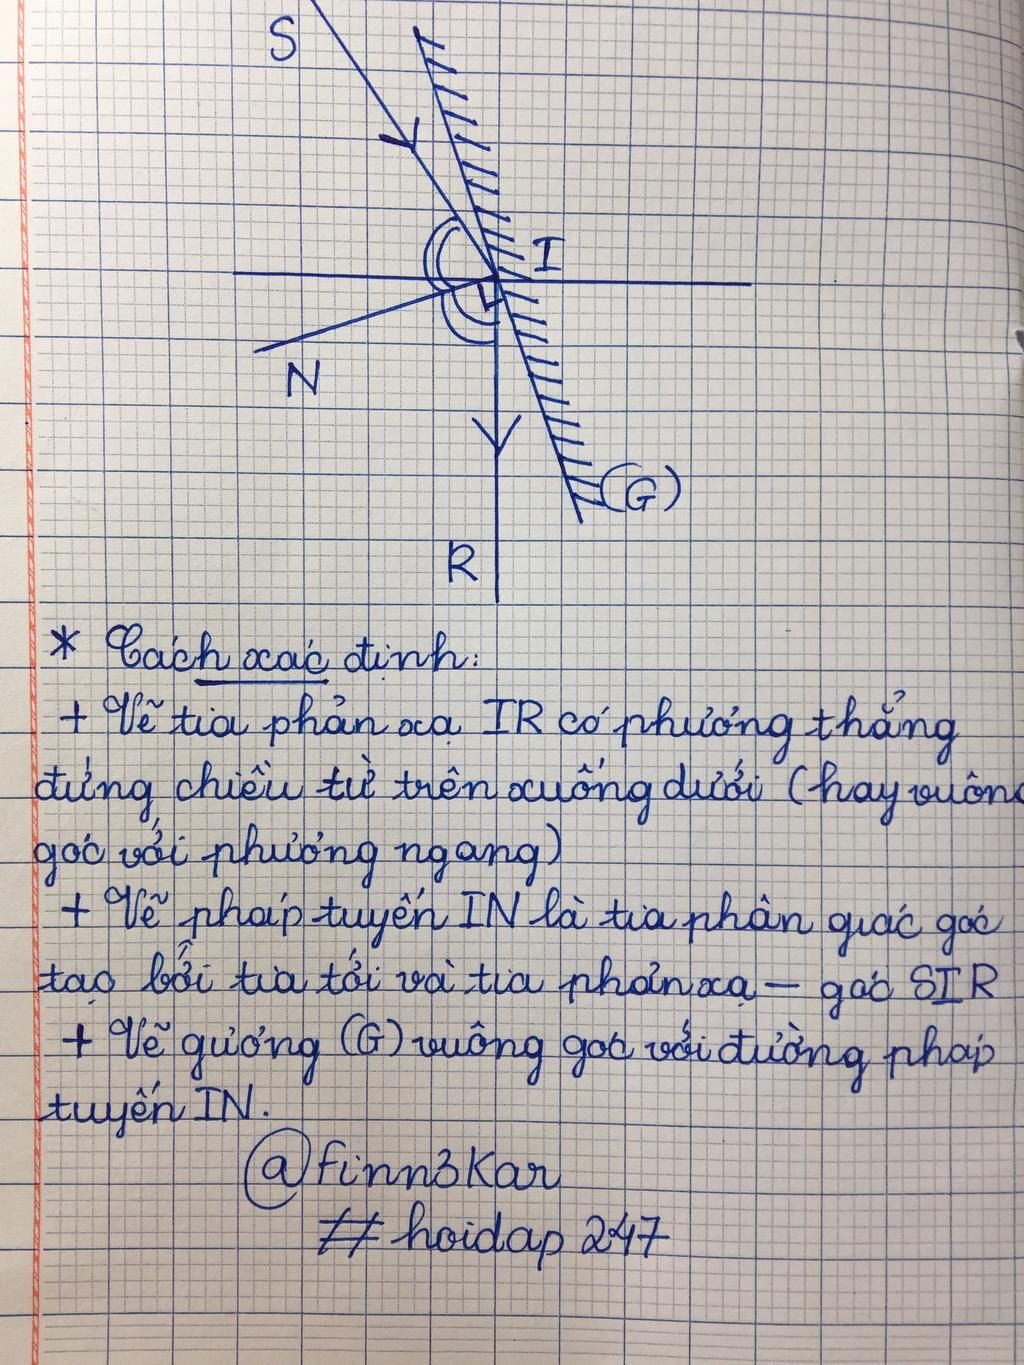 S
I
N
(G)
R
* Cách xác định:
+ Vẽ tia phản xạ IR có phương thẳng
đứng chiều từ trên xuống dưới (hay vuông
góc với phương ngang)
+ Vẽ pháp tuyến IN là tia phân giác góc
tạo bởi tia tới và tia phản xạ – góc SIR
+ Vẽ gương (G) vuông góc với đường pháp
tuyến IN.
@finn3Kar
# hoidap 247